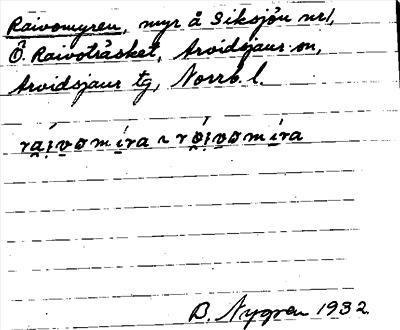 Raivomyren, myr å Siksjön nr 1,
Ö. Raivoträsket, Arvidsjaur sn,
Arvidsjaur tg, Norrb. l.
B. Nygren 1932.